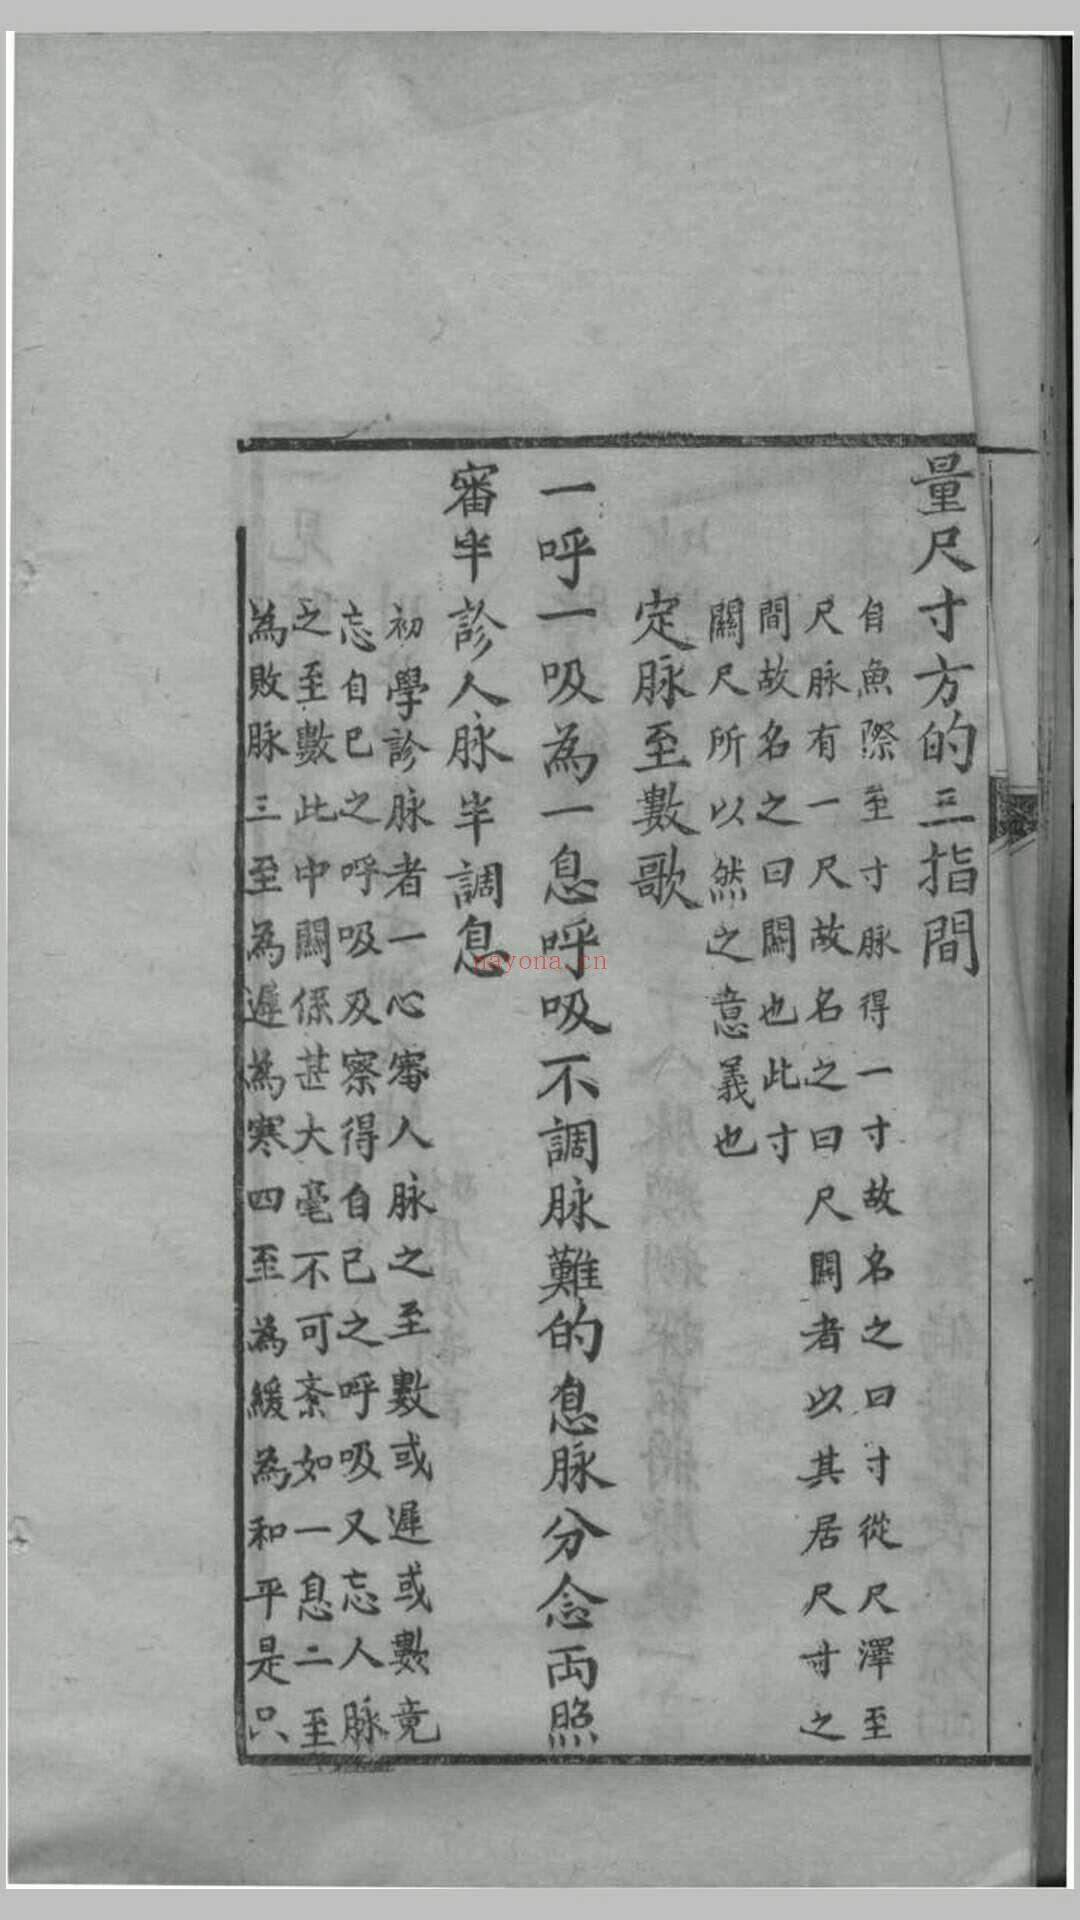 量尺寸方的三指間
自魚際至寸脉得一寸故名之曰寸從尺澤至
尺脉有一尺故名之曰尺關者以其居尺寸之
間故名之曰關也此寸
關尺所以然之意義也
定脉至數歌
一呼一吸為一息呼吸不調脉難的息脉分念両照
審半診人脉半調息
初學診脉者一心審人脉之至數或遲或數竟
忘自已之呼吸及察得自己之呼吸又忘人脉
之至數此中關係甚大毫不可紊如一息二至
為敗脉三至為遲為寒四至為緩為和平是只
nayona.cn